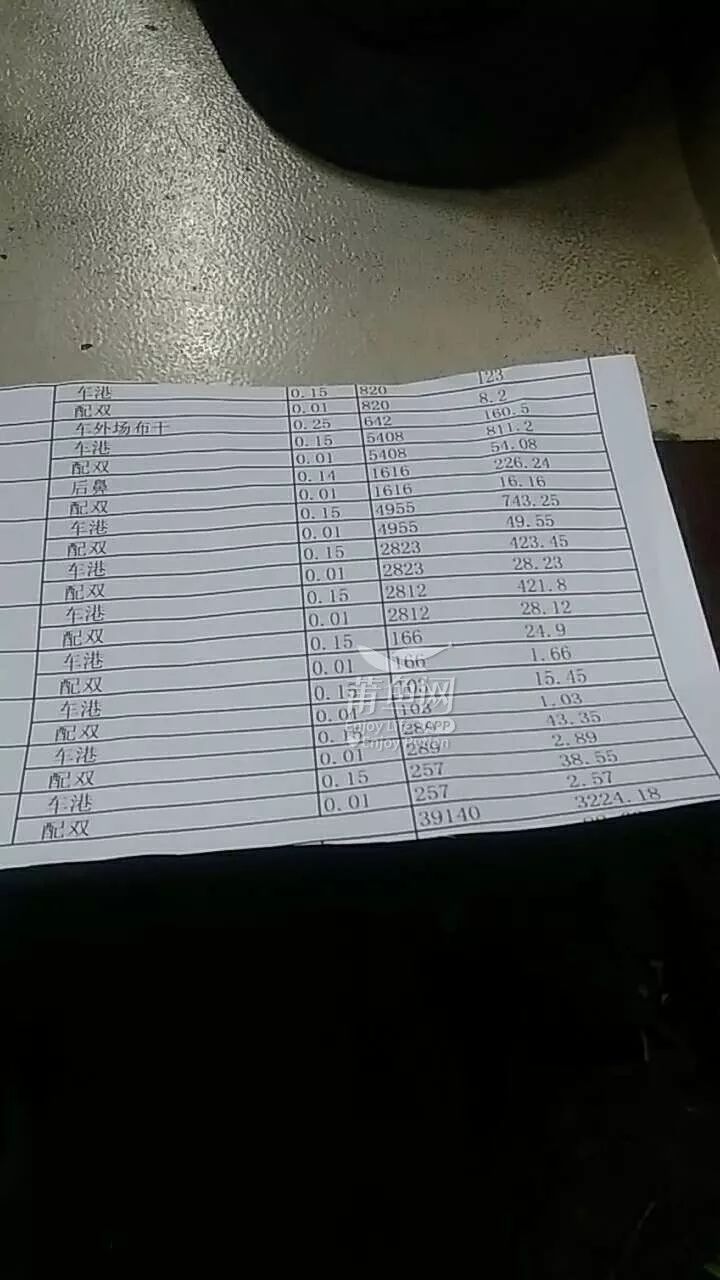 车港 0.15 820 123
配双 0.01 820 8.2
车外场布干 0.25 642 160.5
车港 0.15 5408 811.2
配双 0.01 5408 54.08
后鼻 0.14 1616 226.24
配双 0.01 1616 16.16
车港 0.15 4955 743.25
配双 0.01 4955 49.55
车港 0.15 2823 423.45
配双 0.01 2823 28.23
车港 0.15 2812 421.8
配双 0.01 2812 28.12
车港 0.15 166 24.9
配双 0.01 166 1.66
车港 0.15 103 15.45
配双 0.01 103 1.03
车港 0.15 289 43.35
配双 0.01 289 2.89
车港 0.15 257 38.55
配双 0.01 257 2.57
39140 3224.18
莆鱼网
Enjoy Life APP
Enjoy